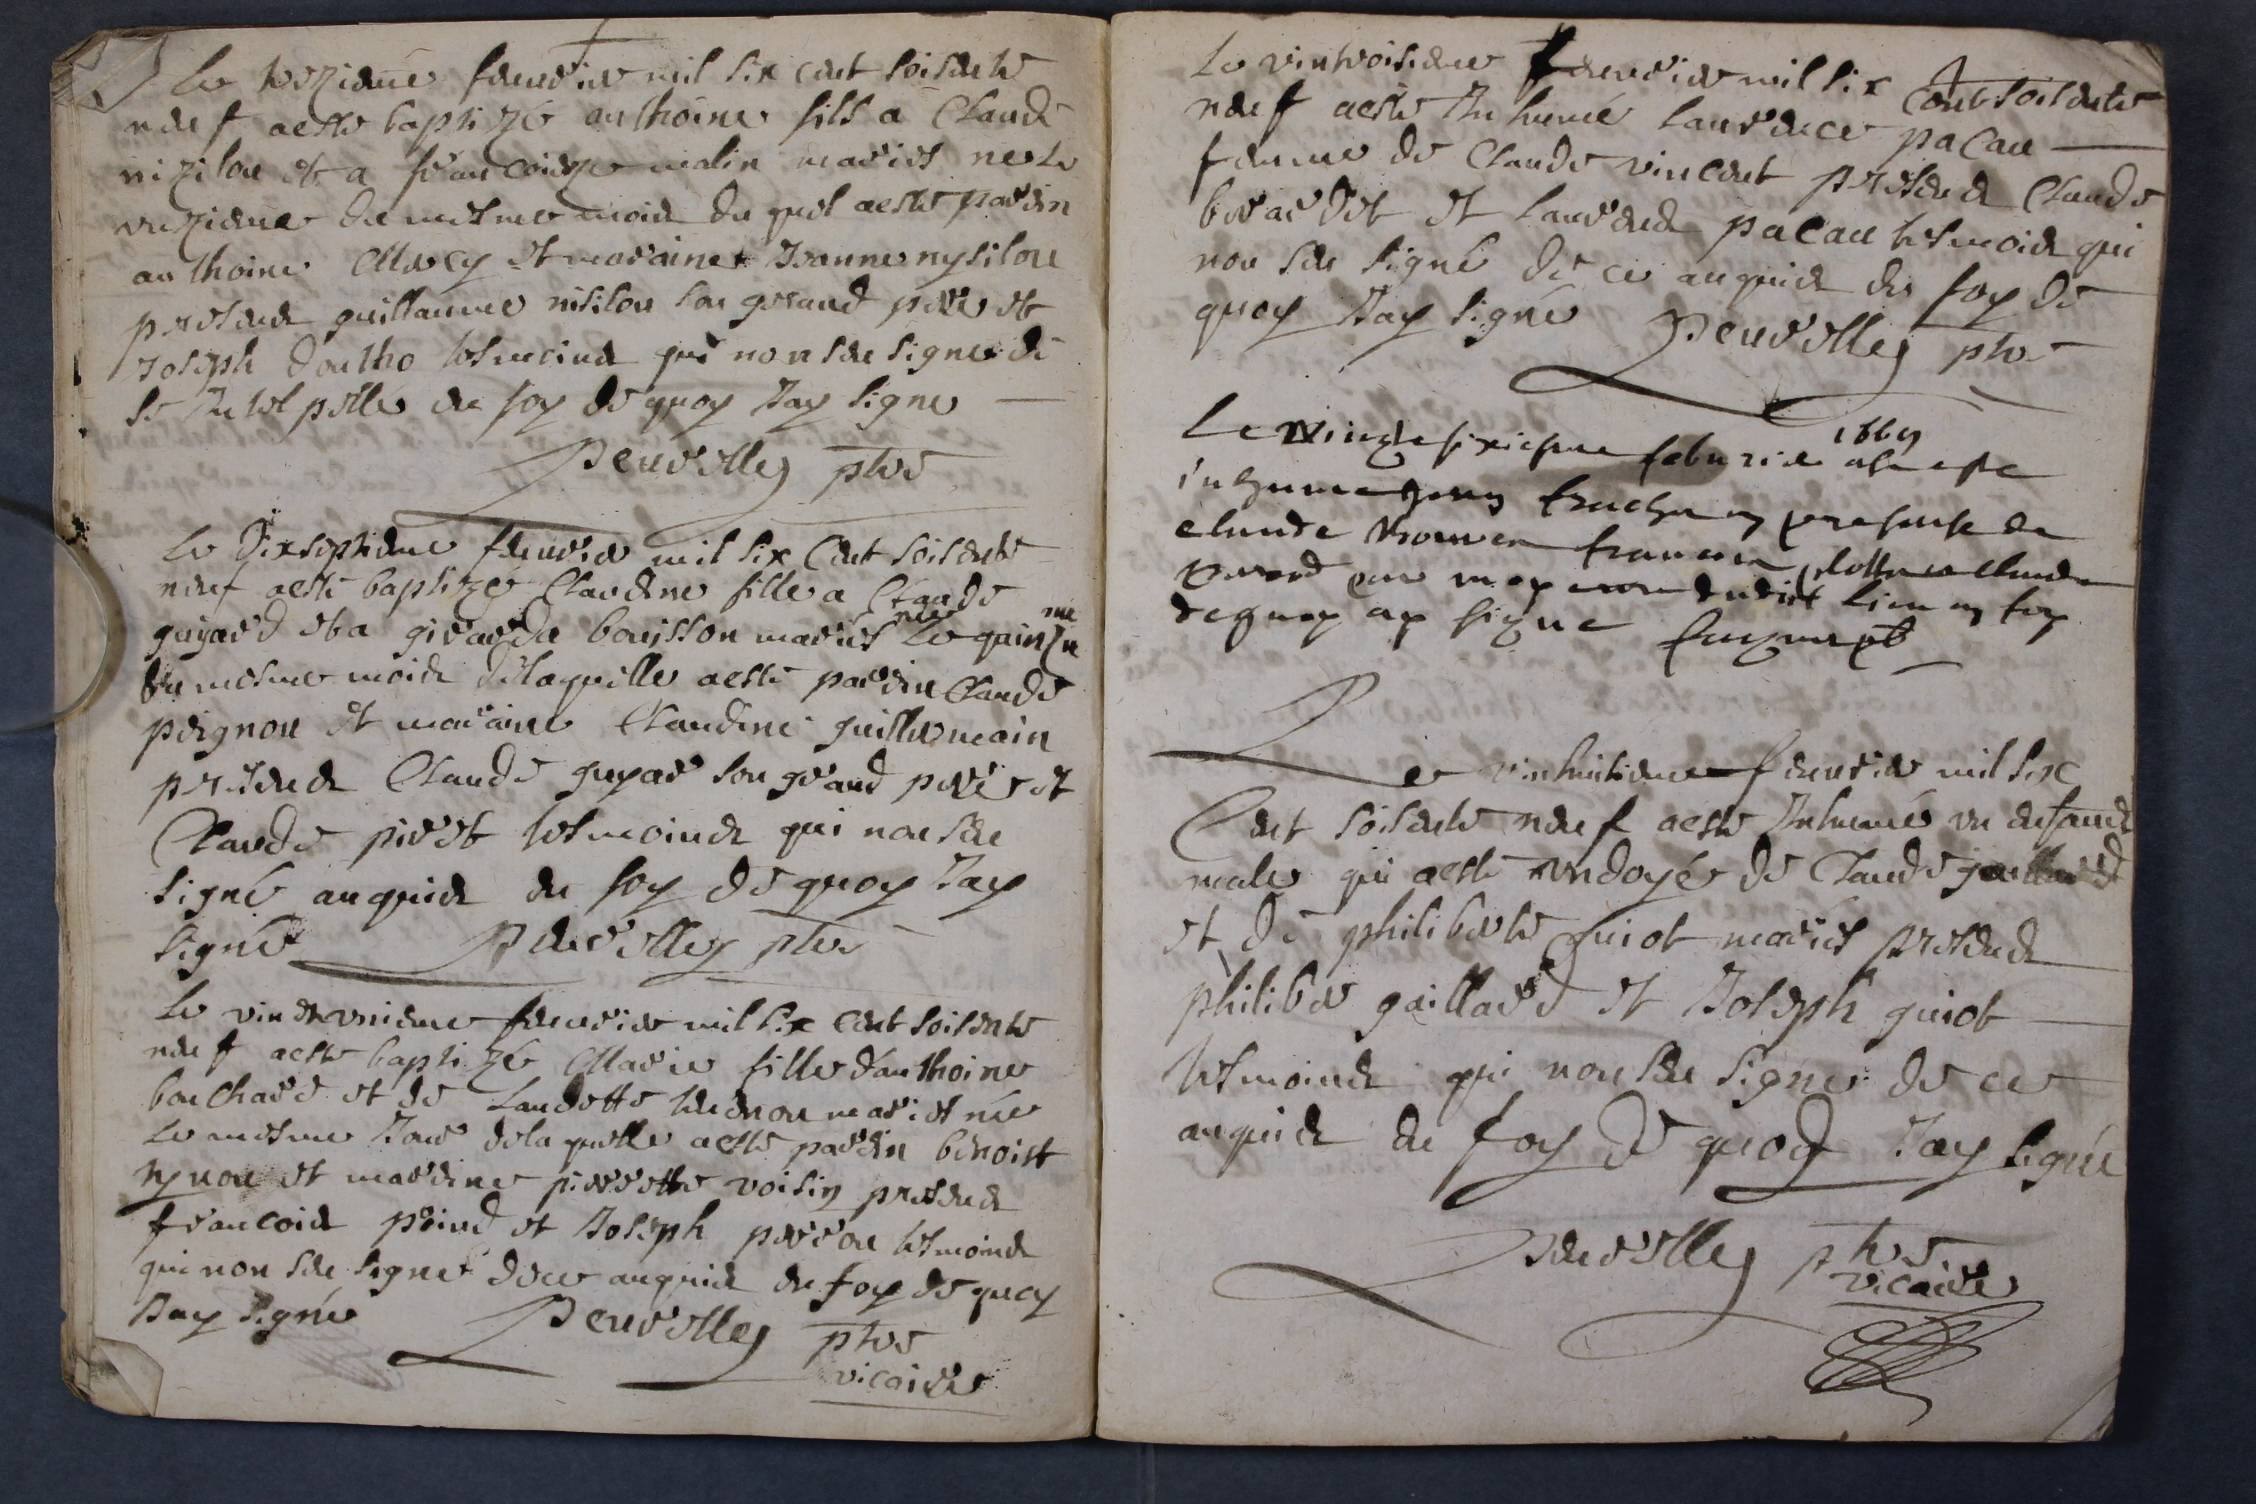 Le trezieme feuvrier mil six cent soisente
neuf aeste baptizé anthoine fils a Claude
nizilou et a francoieze malin mariés ne le
unzieme du mesme moid du quel aeste pardin
anthoine Marcy et maraine Jeanne nysilou
presend guillaume nisilou son gerand pere et
Joseph doutho tesmoind qui non seu signe de
se Intelpellé en foy de quoy Jay signe
Perrelley ptre
Le dixseptieme feuvrier mil six Cent soisente
neuf aesté baptizé Claudine fille a Claude
guyard et a girarde bouisson mariés née le quinzieme
du mesme moid delaquelle aesté pardin Claude
peignon et maraine Claudine guillermain
presend Claude guyar son grand pere et
Claude pirot tesmoind qui non seu
signé anquid en foy de quoy Jay
signé Perrelley ptre
Le vindunieme feuvrier mil six cent soisente
neuf aeste baptizé Marie fille danthoine
bouchard et de Laudette mariet née
le mesme Jour dela quelle aesté pardin benoist
nynon et mardine pierrette voisin presend
francoid et Joseph perron tesmoind
qui non seu signé dece anquid en foy de quoy
Jay signé Perrelley ptre
vicaire
Le vintroisieme feuvrier mil six cent soisente
neuf aeste Inhumé laurence pacau
femme de Claude vincent presend Claude
berardet et laurend pacau tesmoid qui
non seu signé de ce anquid en foy de
quoy Jay signé Perrelley ptre
Le vingt sixiesme feburier 1669 a este
inhume en presense de
claude francois claude
perrod dudict lieu en foy
de quoy ay signe
Le vinhuitieme feuvrier mil six
Cent soisente neuf aeste Inhumé un enfand
male qui aesté ondoyé de Claude gaillard
et de philiberte guiot mariés presend
philiber gaillard et Joseph guiot
tesmoind qui non seu signe de ce
anquid en foy de quoy Jay signé
Perrelley ptre
vicaire